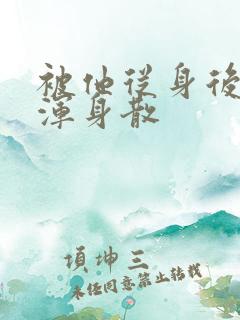 被他从身後
渾身散
項坤三
未经同意禁止转载